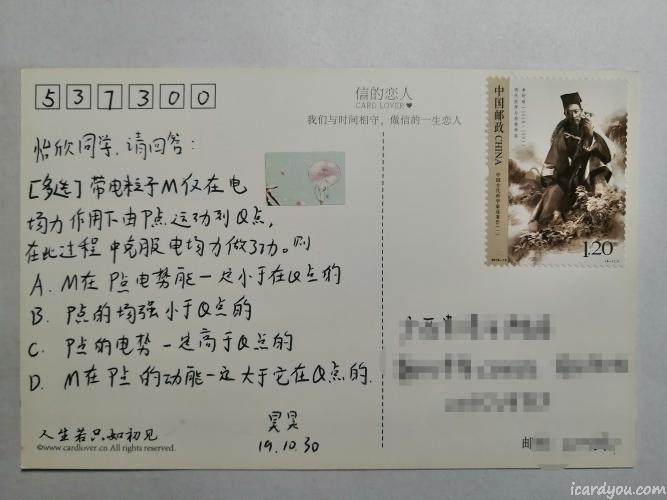 537300
信的恋人
CARD LOVER
我们与时间相守，做信的一生恋人
怡欣同学，请回答：
[多选] 带电粒子M仅在电
场力作用下由P点运动到Q点，
在此过程中克服电场力做了功。则
A. M在P点电势能一定小于在Q点的
B. P点的场强小于Q点的
C. P点的电势一定高于Q点的
D. M在P点的动能一定大于它在Q点的.
昊昊
19.10.30
人生若只如初见
©www.cardlover.cn All rights reserved.
中国邮政 CHINA
1.20
邮
icardyou.com